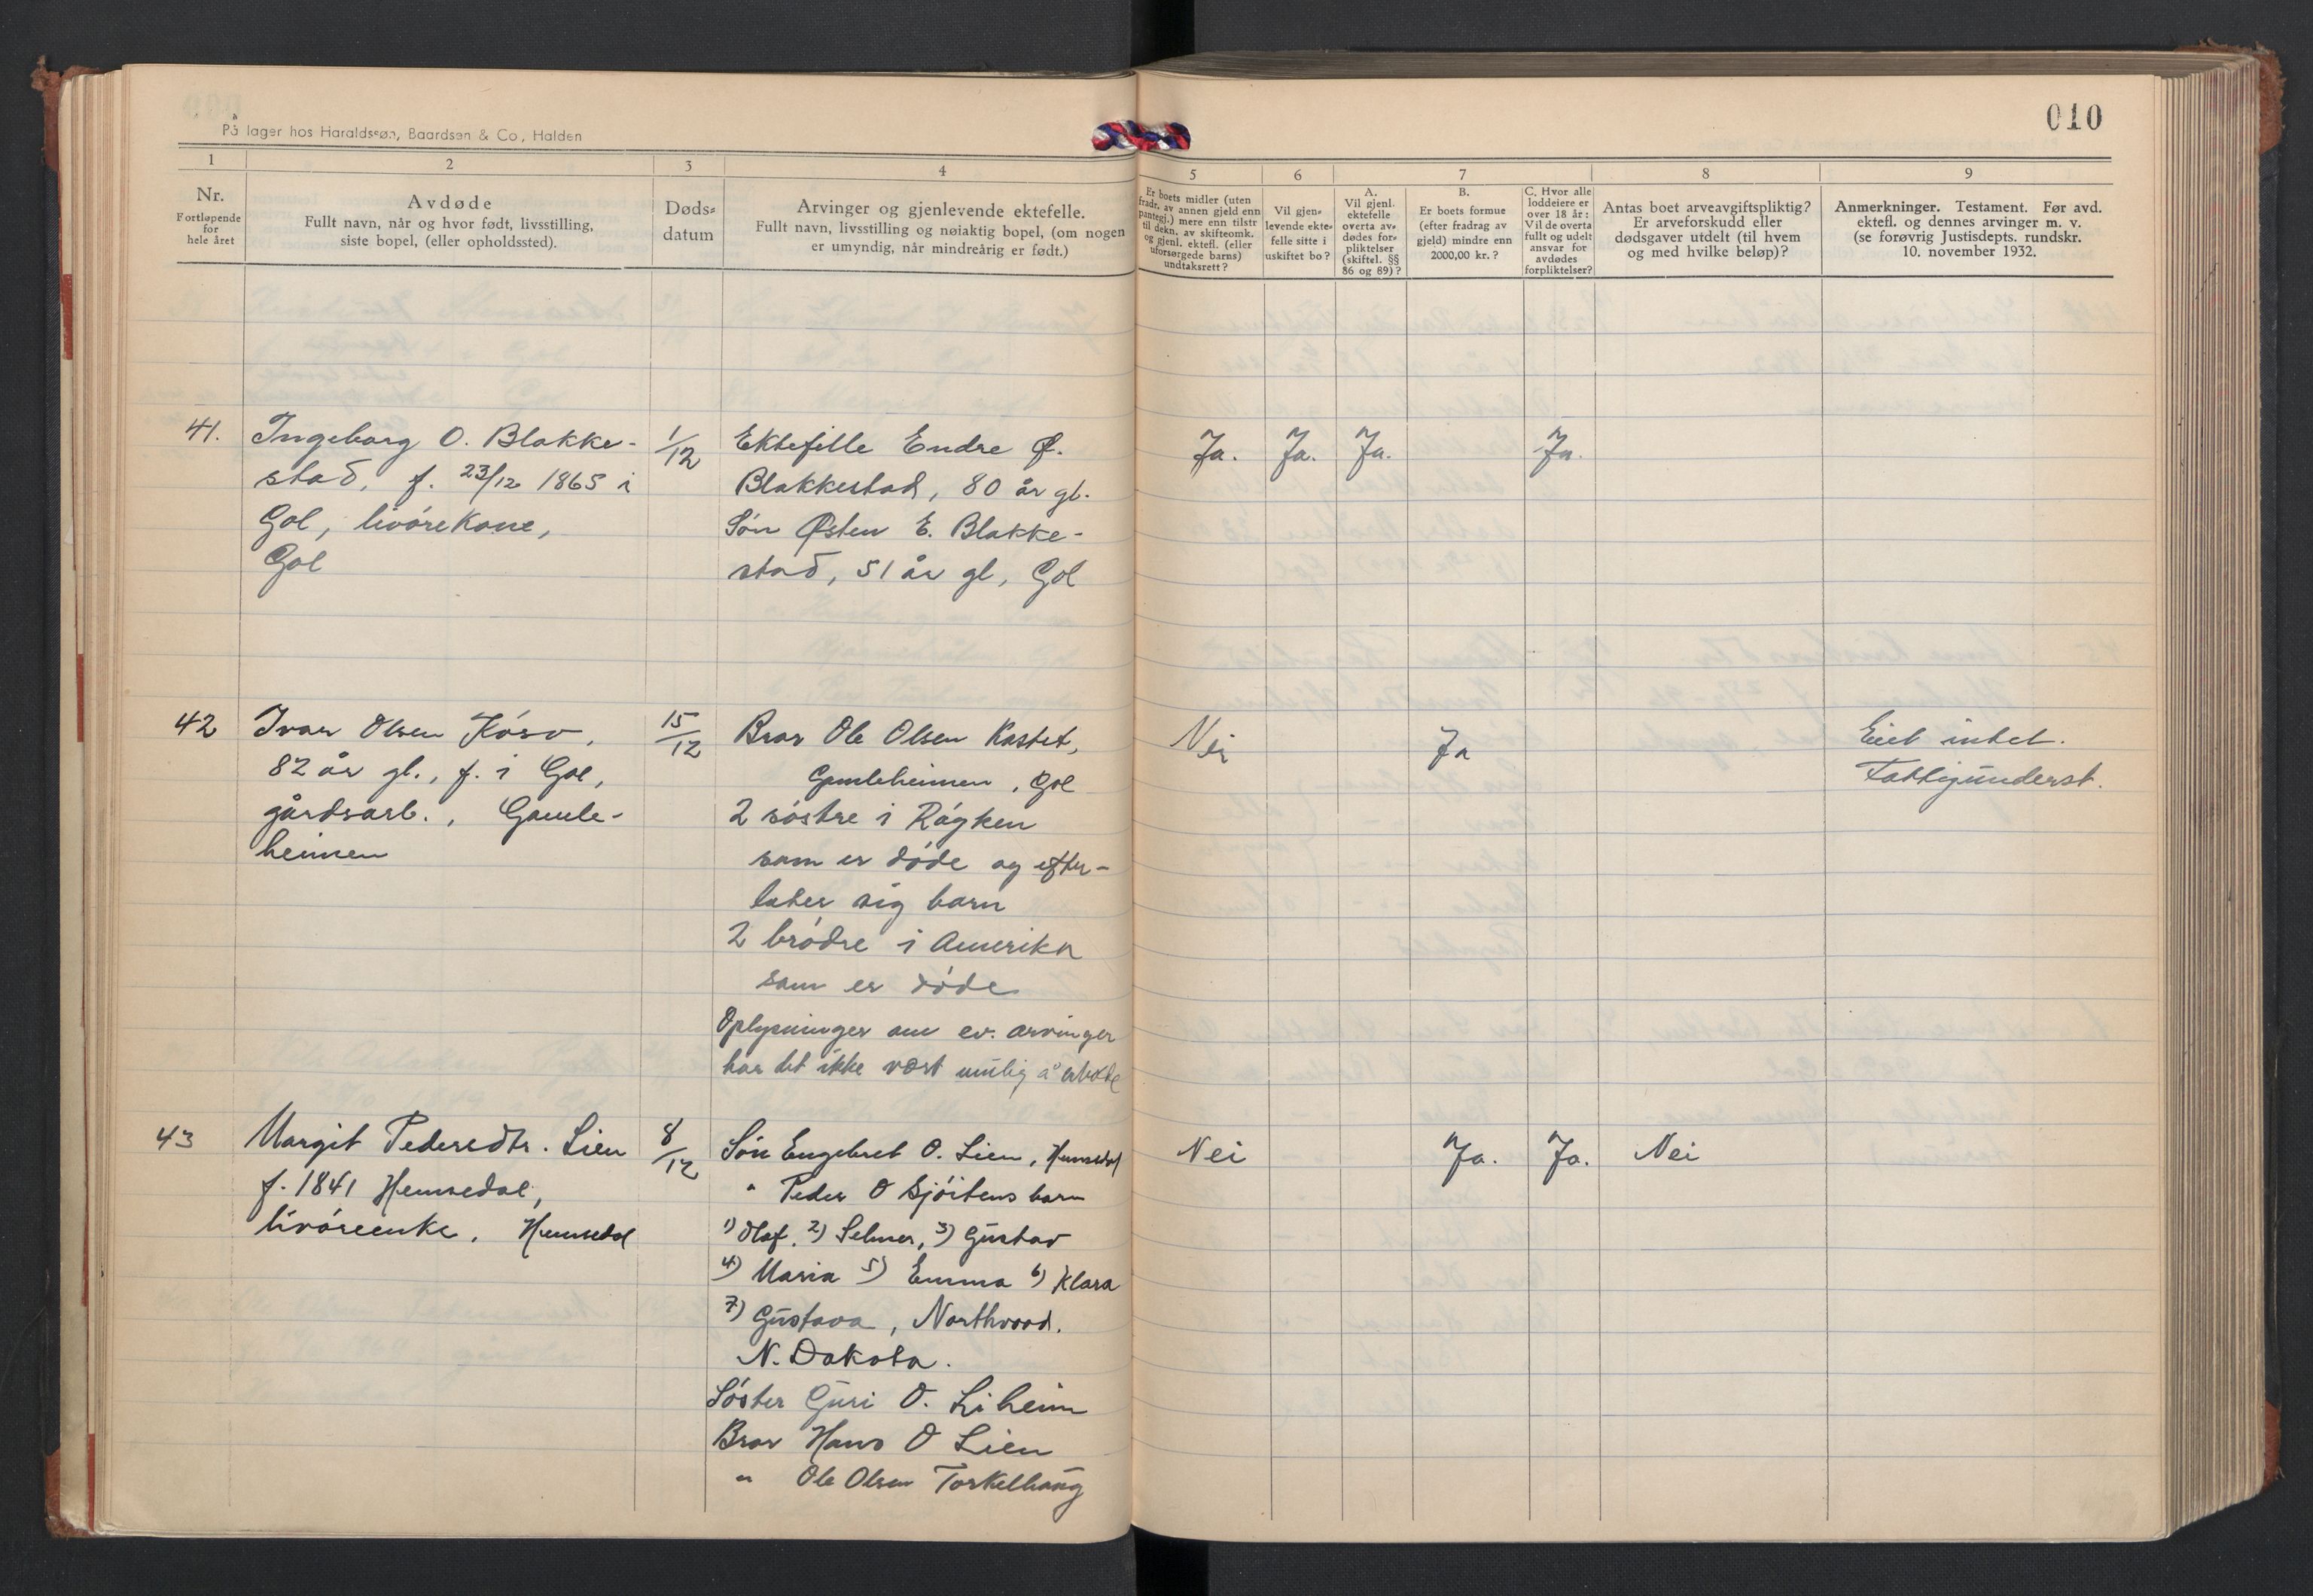 010
På lager hos Haraldssøn, Baardsen & Co., Halden
1 2 3 4 5 6 7 8 9
Nr.
Fortløpende
for
hele året
Avdøde
Fullt navn, når og hvor født, livsstilling,
siste bopel, (eller opholdssted).
Døds-
datum
Arvinger og gjenlevende ektefelle.
Fullt navn, livsstilling og nøiaktig bopel, (om nogen
er umyndig, når mindreårig er født.)
Er boets midler (uten
fradr. av annen gjeld enn
pantegj.) mere enn tilstr
til dekn. av skifteomk.
og gjenl. ektefl. (eller
uforsørgede barns)
undtaksrett?
Vil gjen-
levende ekte-
felle sitte i
uskiftet bo?
A.
Vil gjenl.
ektefelle
overta av-
dødes for-
pliktelser
(skiftel. §§
86 og 89)?
B.
Er boets formue
(efter fradrag av
gjeld) mindre enn
2000,00 kr.?
C. Hvor alle
loddeiere er
over 18 år:
Vil de overta
fullt og udelt
ansvar for
avdødes
forpliktelser?
Antas boet arveavgiftspliktig?
Er arveforskudd eller
dødsgaver utdelt (til hvem
og med hvilke beløp)?
Anmerkninger. Testament. Før avd.
ektefl. og dennes arvinger m. v.
(se forøvrig Justisdepts. rundskr.
10. november 1932.
41.
Ingeborg O. Blakke-
stad, f. 23/12 1865 i
Gol, livörekone,
Gol
1/12
Ektefelle Endre Ø.
Blakkestad, 80 år gl.
Sön Østen E. Blakke-
stad, 51 år gl, Gol
Ja. Ja. Ja. Ja.
42
Ivar Olsen Kósv,
82 år gl., f. i Gol,
gårdsarb., Gamle-
heimen
15/12
Bror Ole Olsen Kastet,
Gamleheimen, Gol
2 söstre i Röyken
som er döde og efter-
later sig barn
2 brödre i Amerika
som er döde
Oplysninger om ev. arvinger
har det ikke vært mulig å erholde
Nei Ja
Eiet intet.
Fattigunderst.
43
Margit Pedersdtr. Lien
f. 1841 Hemsedal,
livöreenke, Hemsedal
8/12
Sön Engebret O. Lien, Hemsedal
" Peder O Sjöitens barn
1) Olaf, 2) Selmer, 3) Gustav
4) Maria 5) Emma 6) Klara
7) Gustava, Northwood.
N. Dakota.
Söster Guri O. Liheim
Bror Hans O Lien
" Ole Olsen Torkelhaug
Nei Ja. Ja. Nei